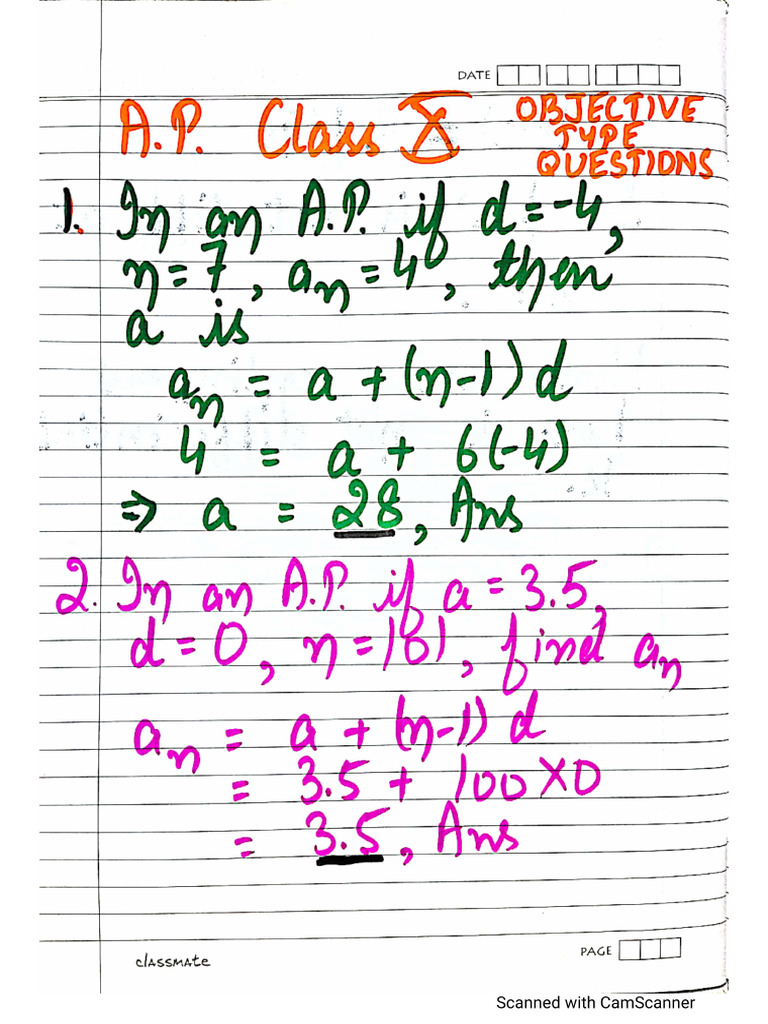 DATE
A.P. Class X OBJECTIVE
TYPE
QUESTIONS
1. In an A.P. if d = -4,
n = 7, an = 4, then
a is
an = a + (n-1) d
4 = a + 6(-4)
⇒ a = 28, Ans
2. In an A.P. if a = 3.5,
d = 0, n = 101, find an
an = a + (n-1) d
= 3.5 + 100 X 0
= 3.5, Ans
classmate
PAGE
Scanned with CamScanner